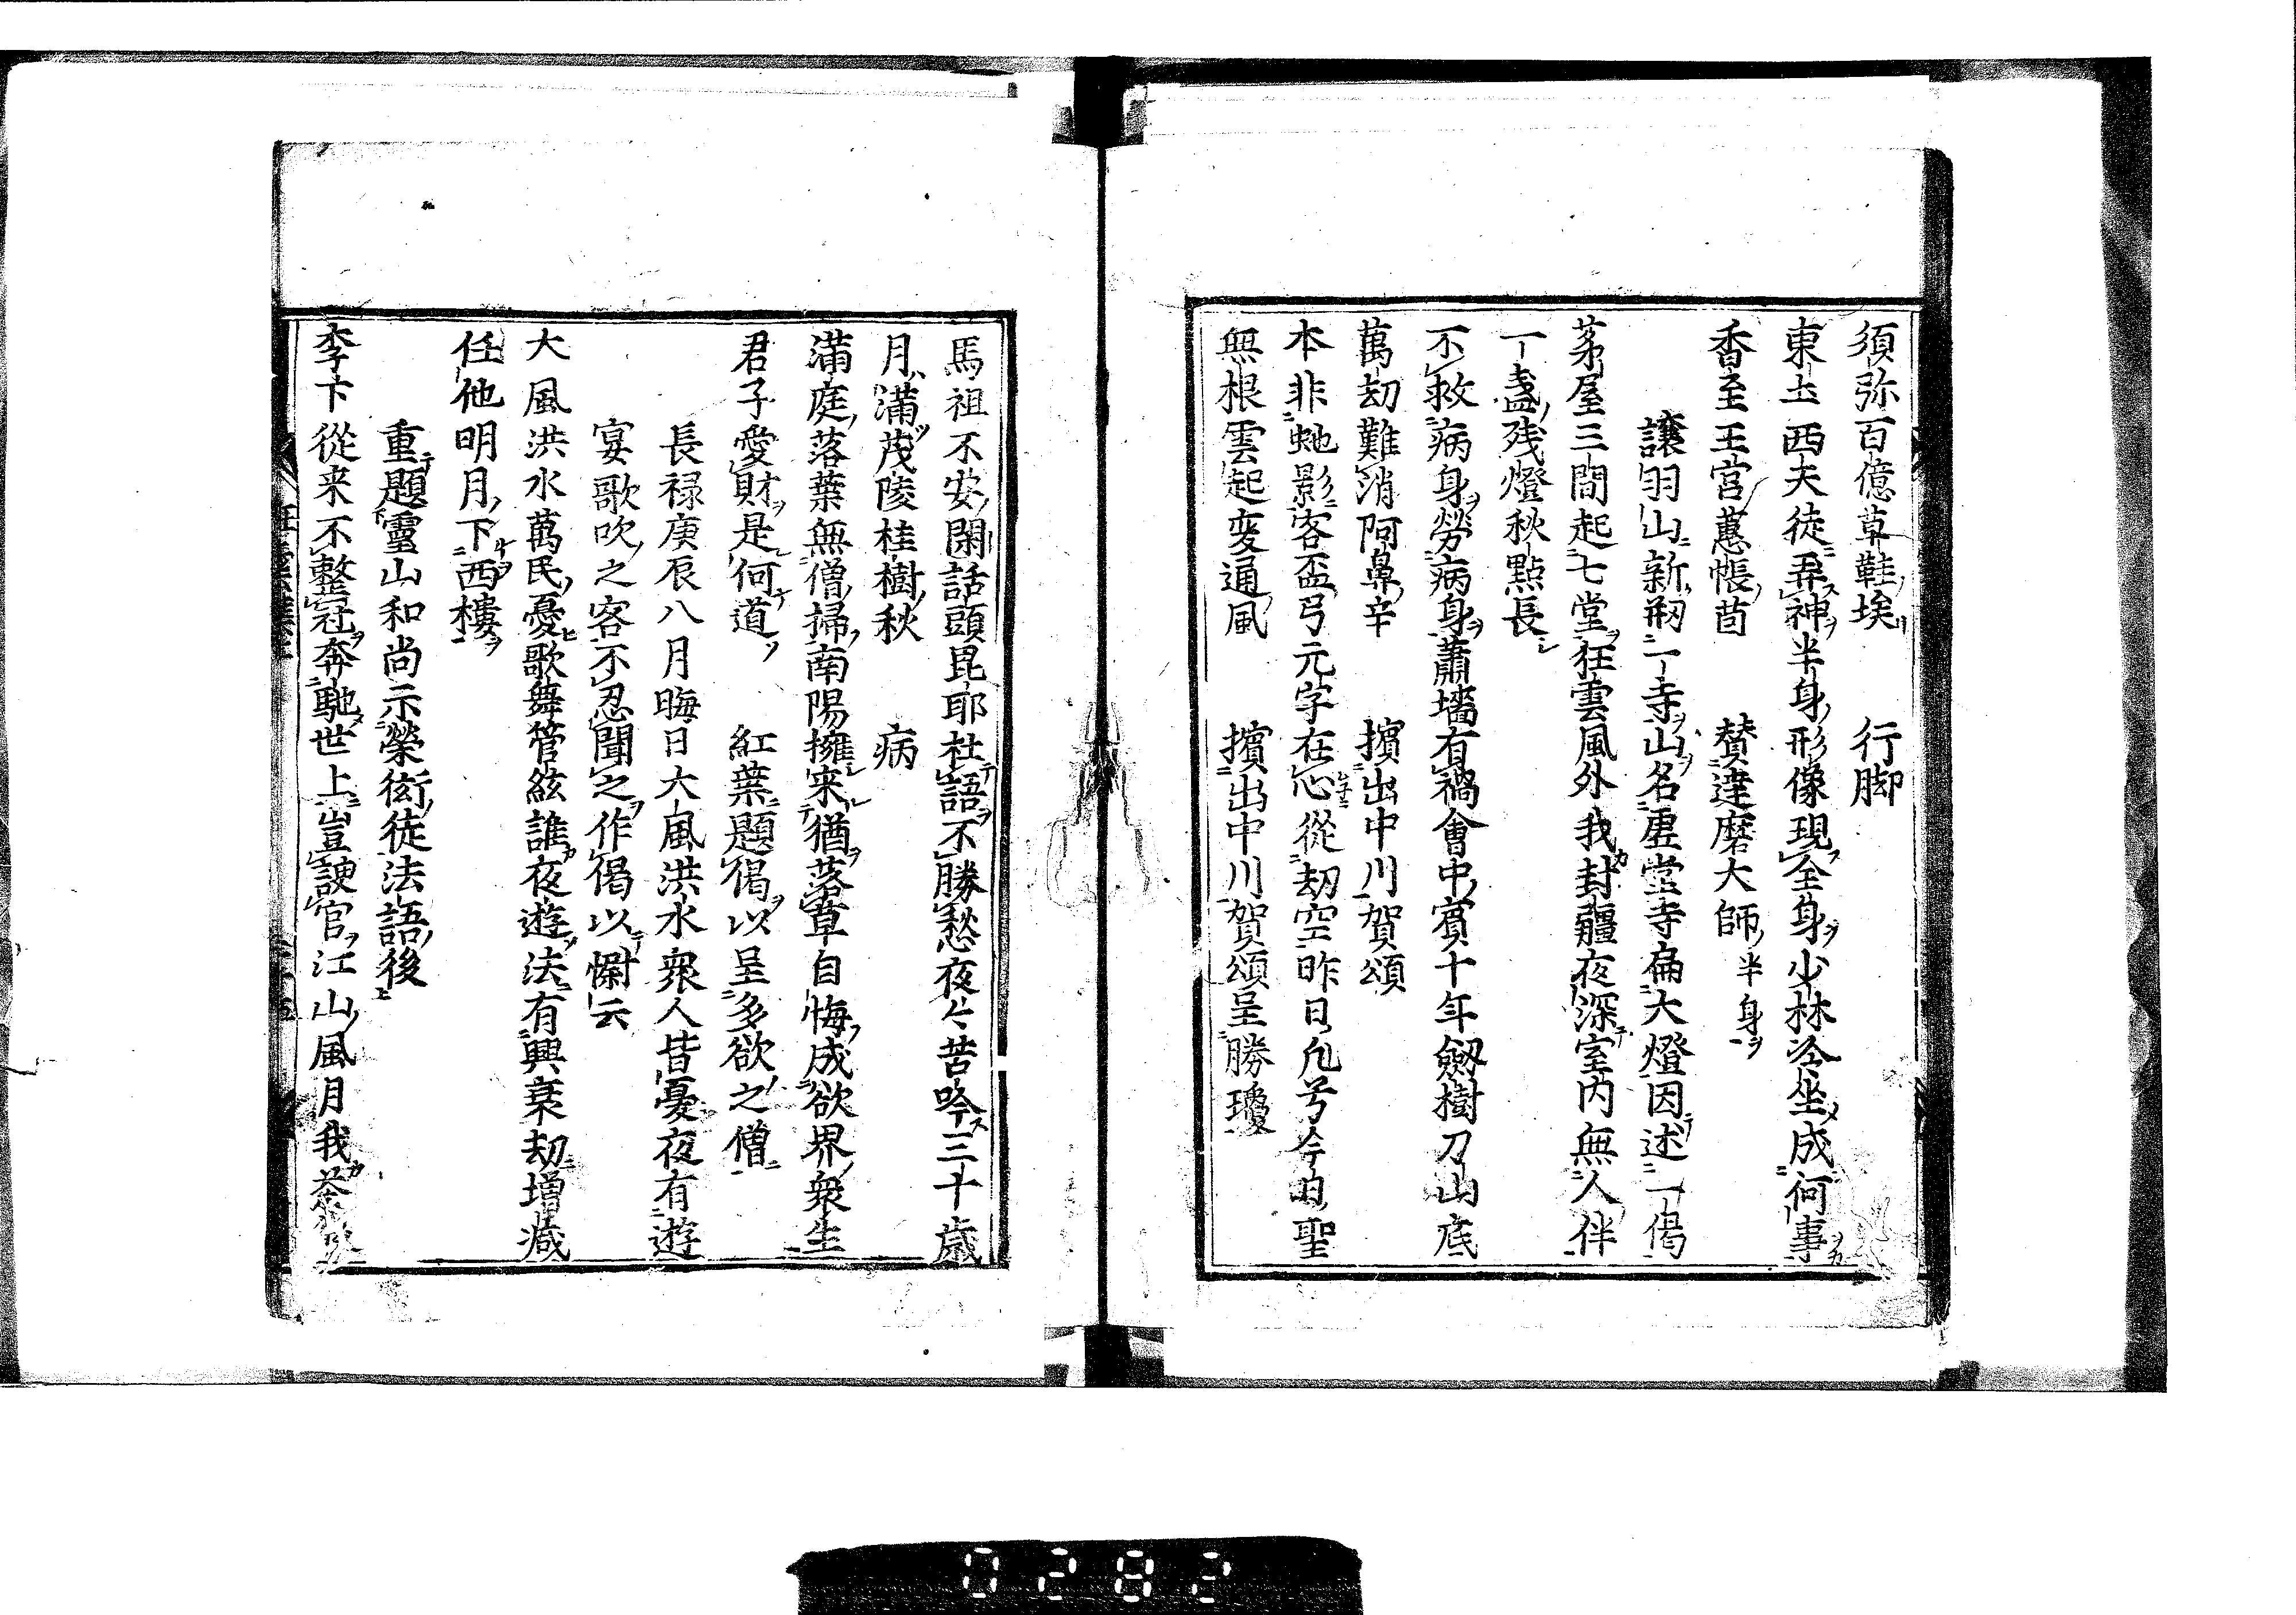 須弥百億草鞋埃　行脚
東土西天徒弄神半身形像現全身少林冷坐成何事
香至王宮蕙帳茵　賛達磨大師半身
譲羽山新剏一寺山名虚堂寺扁大燈因述一偈
茅屋三間起七堂狂雲風外我封疆夜深室内無人伴
一盞残燈秋點長
不救病身労病身蕭墻有禍會中賓十年劔樹刀山底
萬劫難消阿鼻辛　擯出中川賀頌
本非虵影客盃弓元字在心從劫空昨日凢兮今日聖
無根雲起変通風　擯出中川賀頌呈勝瓊
馬祖不安閑話頭毘耶杜語不勝愁夜々苦吟三十歳
月滿茂陵桂樹秋　病
滿庭落葉無僧掃南陽擁来猶落草自悔成欲界衆生
君子愛財是何道　紅葉題偈以呈多欲之僧
長禄庚辰八月晦日大風洪水衆人皆憂夜有遊
宴歌吹之客不忍聞之作偈以慰云
大風洪水萬民憂歌舞管絃誰夜遊法有興衰劫増减
任他明月下西樓
重題靈山和尚示榮衒徒法語後
李下從来不整冠奔馳世上豈諛官江山風月我茶